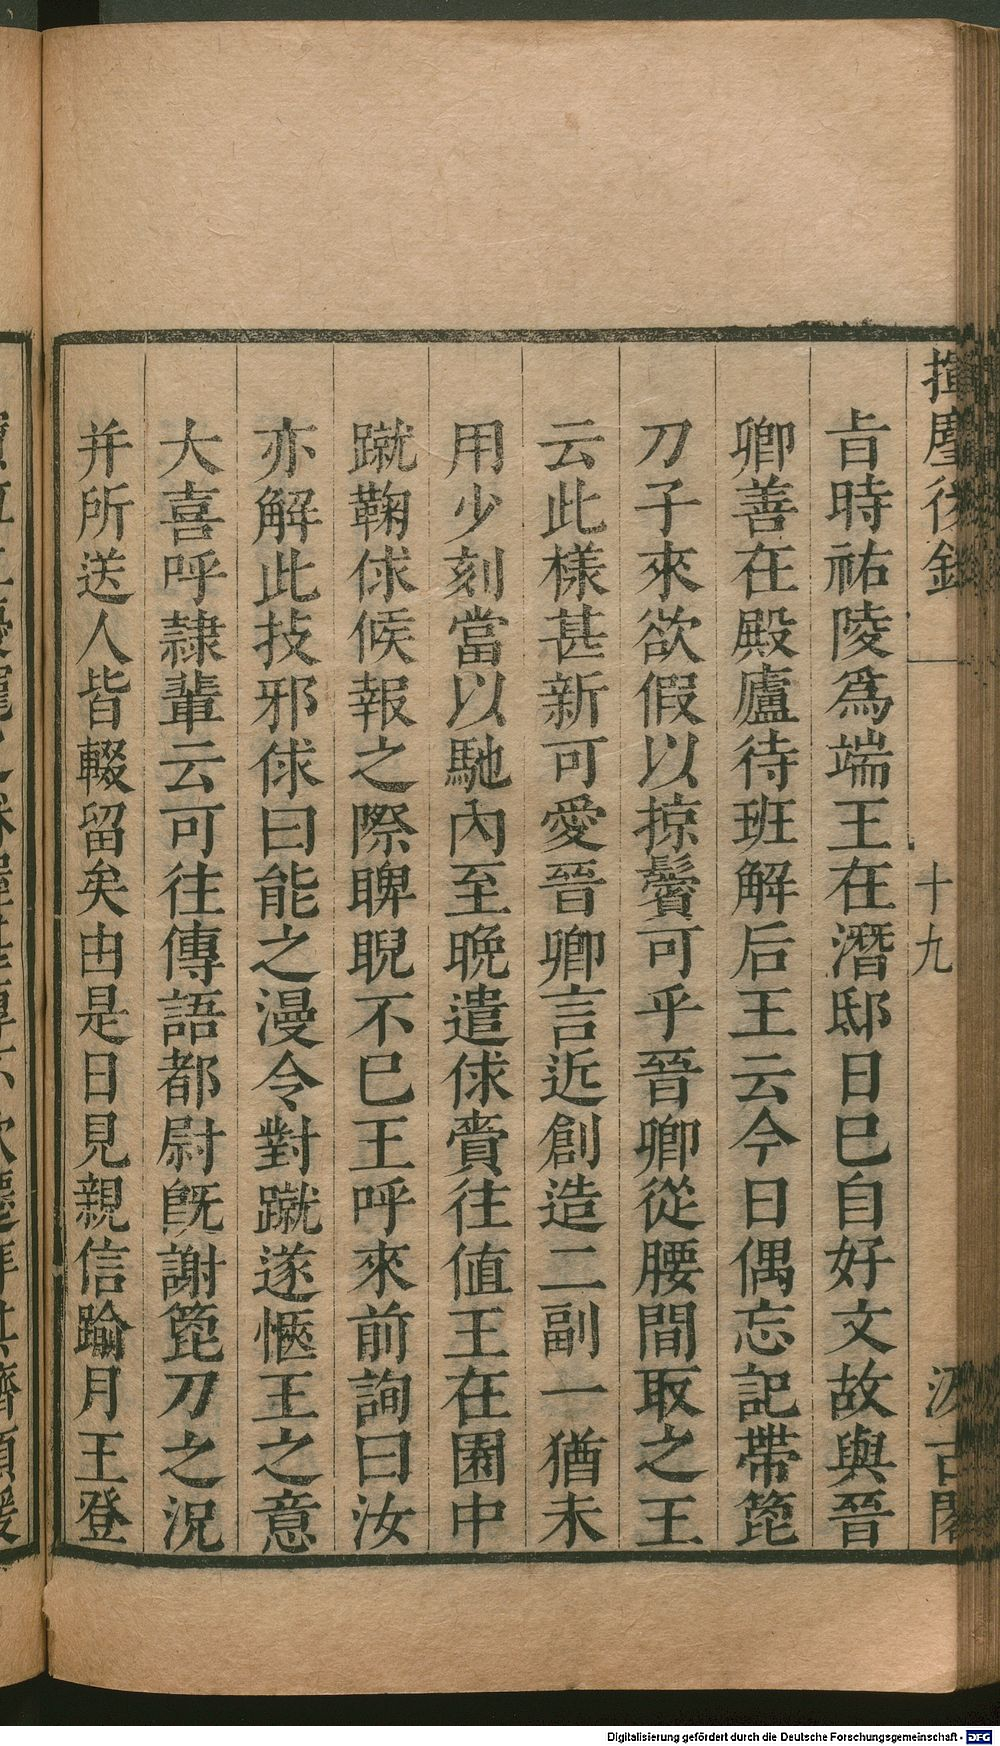 揮麈後錄
十九
汲古閣
旨時祐陵爲端王在潛邸日巳自好文故與晉
卿善在殿廬待班解后王云今日偶忘記帶篦
刀子來欲假以掠鬢可乎晉卿從腰間取之王
云此樣甚新可愛晉卿言近創造二副一猶未
用少刻當以馳內至晚遣俅賫往值王在園中
蹴鞠俅候報之際睥睨不巳王呼來前詢曰汝
亦解此技邪俅曰能之漫令對蹴遂愜王之意
大喜呼隷輩云可往傳語都尉旣謝篦刀之況
并所送人皆輟留矣由是日見親信踰月王登
Digitalisierung gefördert durch die Deutsche Forschungsgemeinschaft - DFG